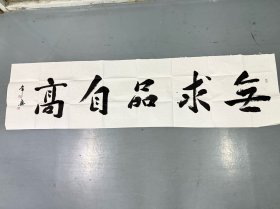 無求品自高